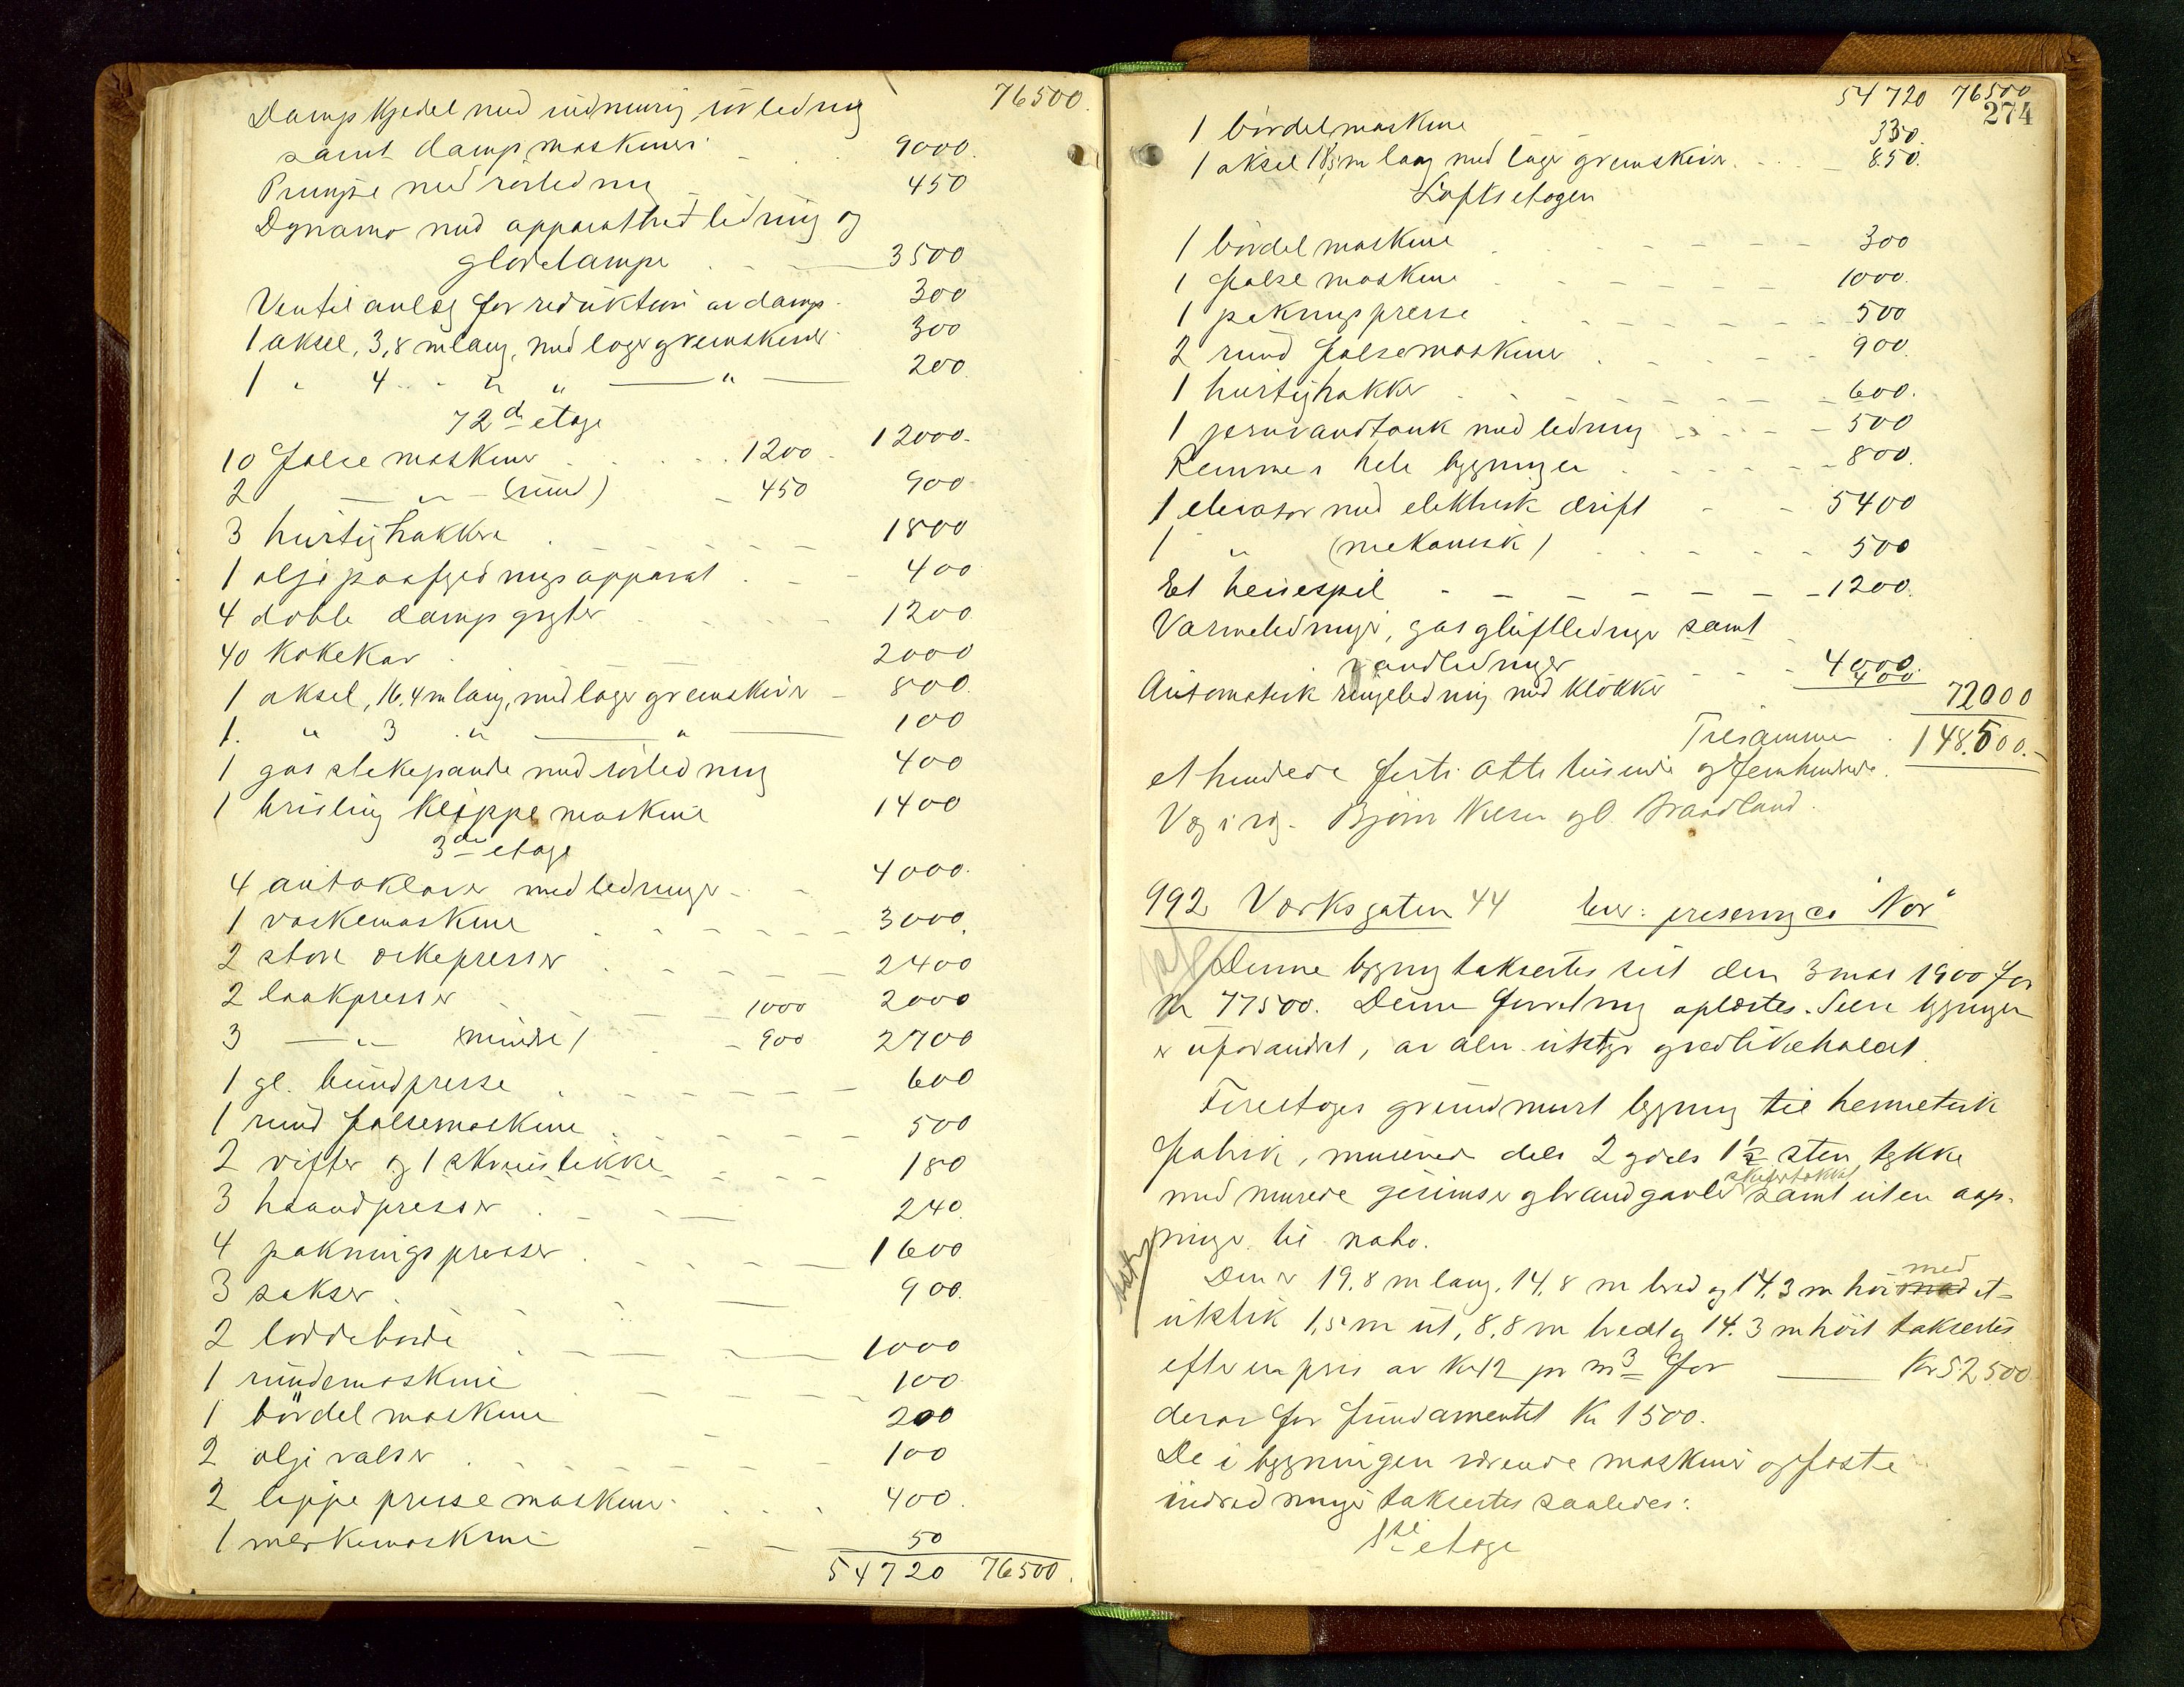 76500.
Dampkjedel med indmuring rörledning
samt dampmaskiner 9000.
Pumpe med rörledning 450
Dynamo med apparattavle ledning og
glödelampe 3500
Ventilanlæg for reduktion av damp. 300
1 aksel, 3,8 m lang, med lager gremskiver 300
1 " 4 " " " 200.
2den etage
10 falsemaskiner 1200 12000.
2 —"— (rund) 450 900.
3 hurtighakkere 1800
1 oljepaafyldningsapparat 400
4 doble dampgryter 1200
40 kokekar 2000
1 aksel, 16,4 m lang, med lager gremskiver 800.
1 " 3 " " 100
1 gas stekepande med rörledning 400
1 brisling klippemaskine 1400
3die etage
4 autoklaver med ledninger 4000.
1 vaskemaskine 3000.
2 store ækepresser 2400
2 laakpresser 1000 2000
3 —"— (mindre) 900 2700
1 gl. bundpresse 600
1 rund falsemaskine 500
2 vifter og 1 skruestikke 180
3 haandpresser 240.
4 pakningspresser 1600
3 sakser 900.
2 loddeborde 1000
1 rundemaskine 100
1 bördelmaskine 200
2 olje valser 100
2 lippe pressemaskiner 400.
1 merkemaskine 50
54720 76500.
54720 76500
274
1 bördelmaskine 350.
1 aksel 18,5 m lang med lager gremskiver 850.
Loftsetagen
1 bördelmaskine 300
1 falsemaskine 1000.
1 pakningspresse 500
2 rund falsemaskiner 900.
1 hurtighakker 600.
1 jernvandtank med ledning 500
Remme i hele bygningen 800.
1 elevator med elektrisk drift 5400
1 " (mekanisk) 500
Et heisespil 1200.
Varmeledninger, gas gluftledninger samt
vandledninger 4000.
Automatisk ringeledning med klokker 400 72000
Tilsammen 148.500.-
et hundrede firti otte tusende og femhundrede.
V og i rg. Björn Nilsen og O. Braadland.
992 Verksgaten 44 Eier: preserving co "Nor"
Denne bygning taksertes sist den 3 mai 1900 for
kr 77500. Denne forretning oplæstes. Selve bygningen
er uforandret, av alm. utstyr og vedlikeholdt.
Fireetages grundmurt bygning til hermetisk
fabrik, murene dels 2 og dels 1 1/2 sten tykke
med murede gesimser og brandgavler skifertækket samt uten aap-
ninger til nabo.
Den er 19,8 m lang, 14,8 m bred og 14,3 m höi med et
utstik 1,5 m ut, 8,8 m bredt og 14.3 m höit taksertes
efter en pris av Kr 12 pr m3 for Kr 52500.
derav for fundamentet Kr 1500.
De i bygningen værende maskiner og faste
indredninger taksertes saaledes:
1ste etage